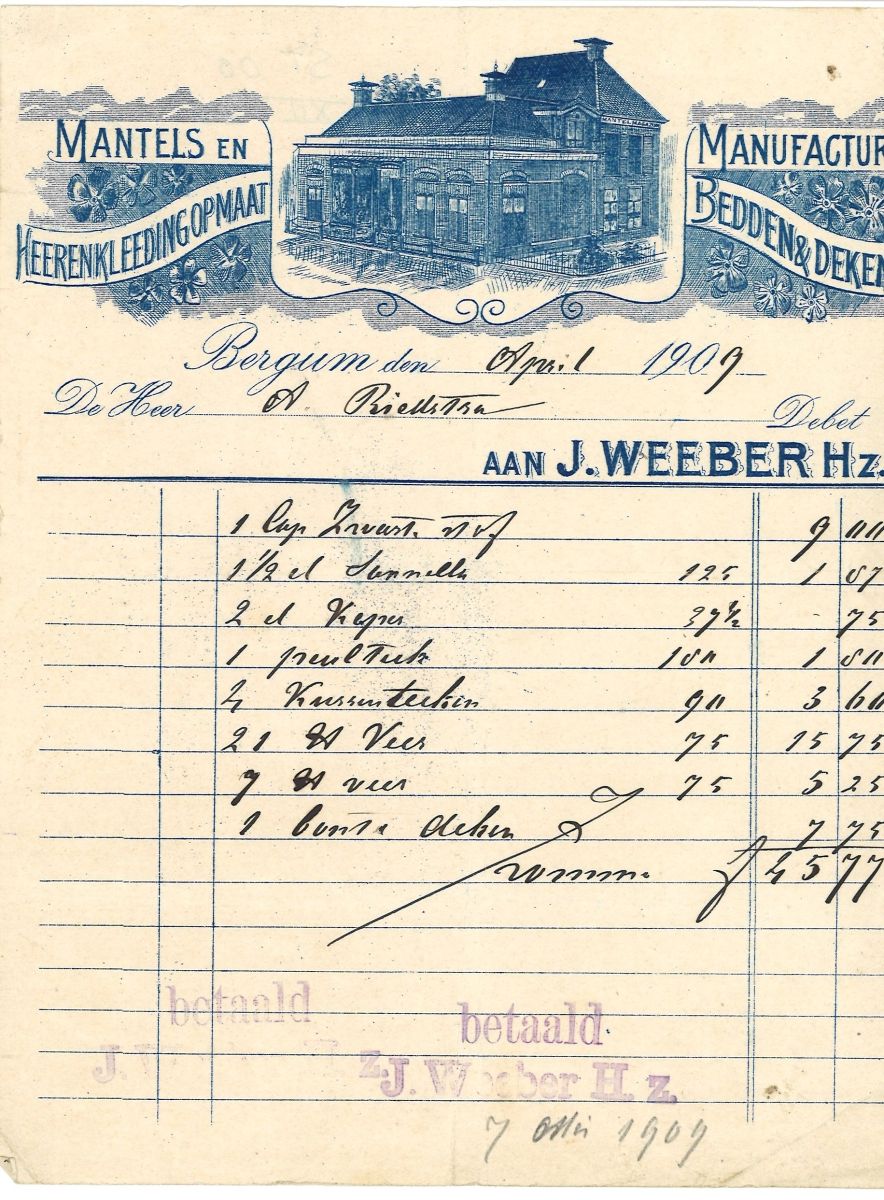 MANTELS EN
HEERENKLEEDING OP MAAT
MANTEL MAGA
MANUFACTUR
BEDDEN & DEKEN
Bergum den April 1909
De Heer A. Riedstra Debet
AAN J. WEEBER Hz.
1 Cap Zwarte stof 9 00
1 1/2 el 125 1 87
2 el Keper 37 1/2 - 75
1 peulteek 180 1 80
4 Kussenteeken 90 3 60
21 ℔ Veer 75 15 75
7 ℔ veer 75 5 25
1 bonte deken 7 75
Somma f 45 77
betaald betaald
J. W z. J. Weeber H. z.
7 1909